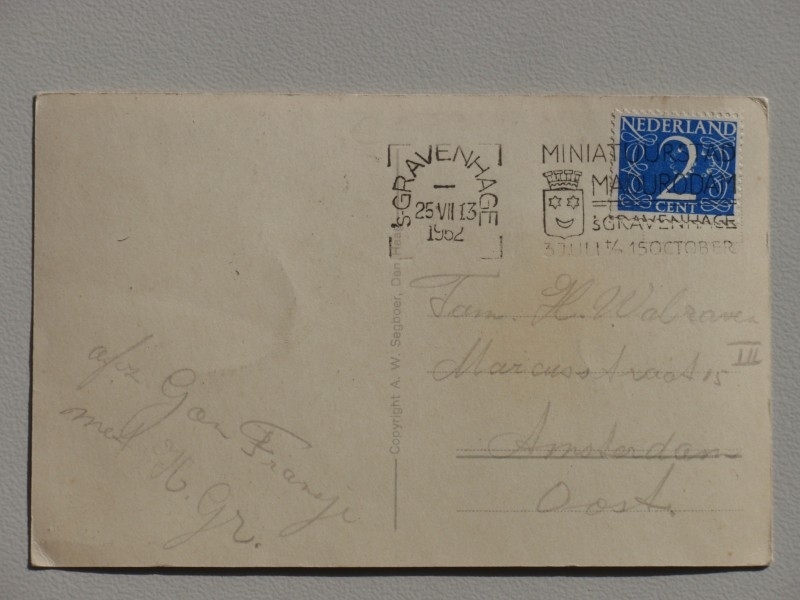 'sGRAVENHAGE
25 VII 13
1952
MINIATUURSTAD
MADURODAM
'sGRAVENHAGE
3 JULI t/m 15 OCTOBER
NEDERLAND
2
CENT
Copyright A. W. Segboer, Den Haag
Fam. H. Walraven
Marcusstraat 15 III
Amsterdam
Oost.
afz Gon Fransje
met H. Gr.